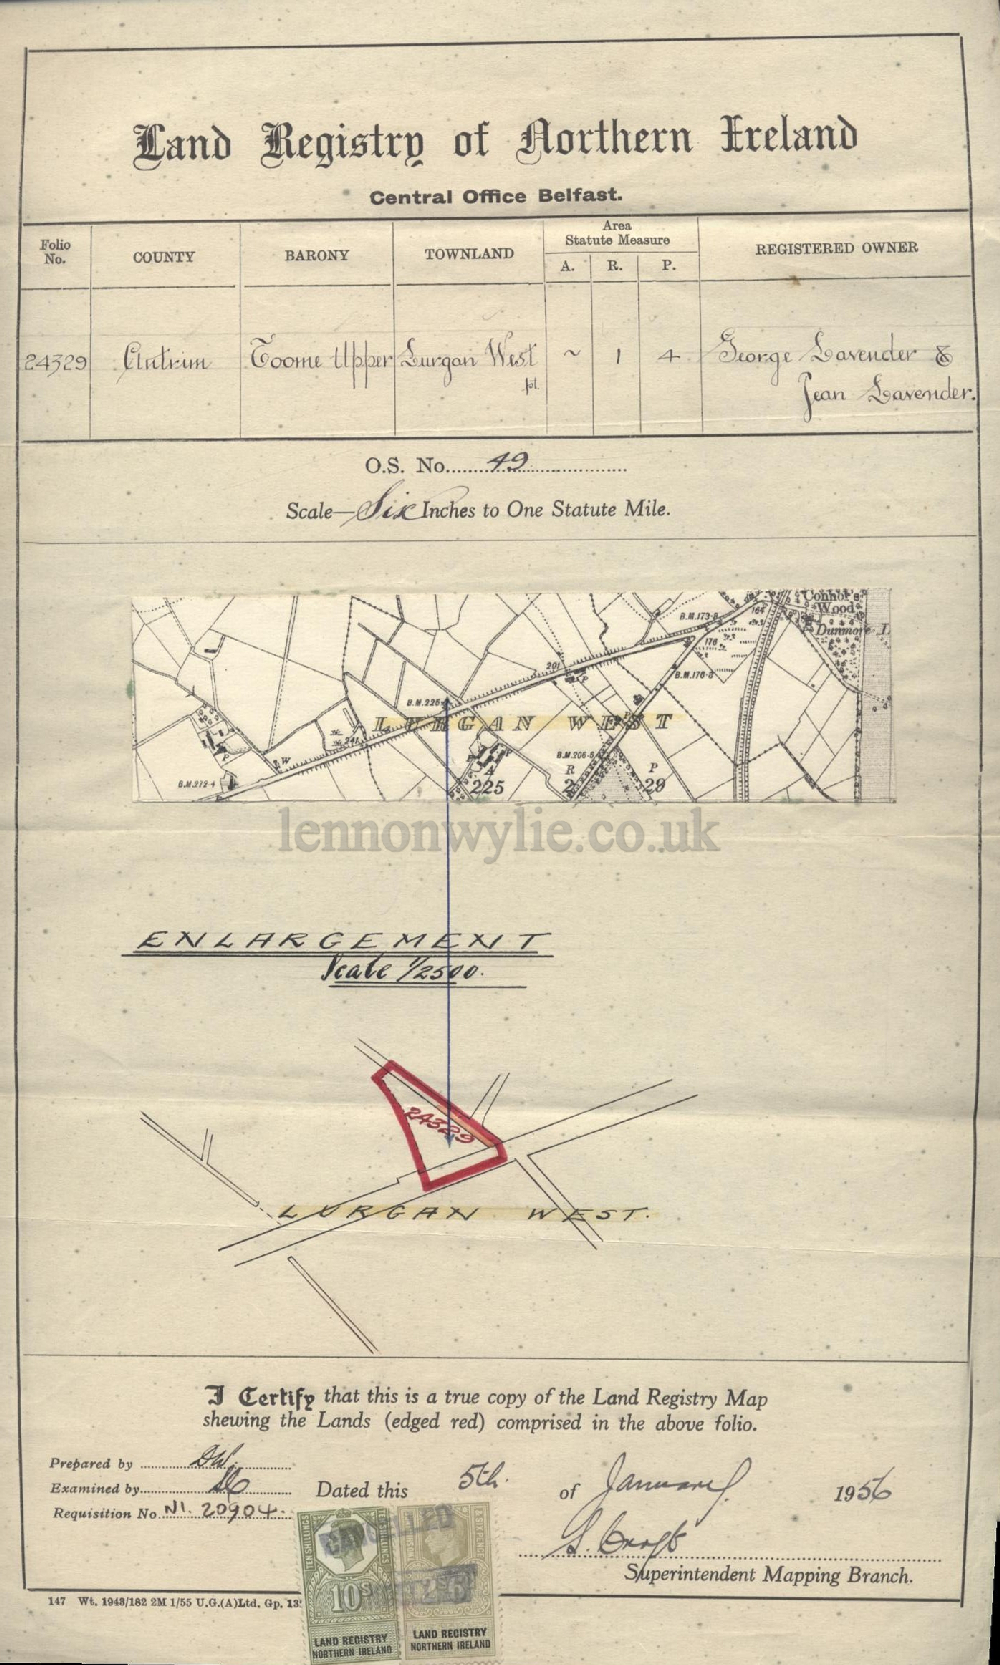 Land Registry of Northern Ireland
Central Office Belfast.
Folio No.
COUNTY
BARONY
TOWNLAND
Area
Statute Measure
A. R. P.
REGISTERED OWNER
24329 Antrim Toome Upper Lurgan West ~ 1 4 George Lavender &
pt. Jean Lavender.
O.S. No. 49
Scale—Six Inches to One Statute Mile.
Connor's
Wood
Dunmore L
B.M.173·8
164
176
B.M.176·8
201
LURGAN WEST
241
W
B.M.272·4
A
225
R
2
P
29
lennonwylie.co.uk
ENLARGEMENT
Scale 1/2500.
24329
LURGAN WEST.
I Certify that this is a true copy of the Land Registry Map
shewing the Lands (edged red) comprised in the above folio.
Prepared by
Examined by
Requisition No NI. 20904.
Dated this 5th. of January. 1956
Superintendent Mapping Branch.
147 Wt. 1943/182 2M 1/55 U.G.(A)Ltd. Gp. 13
CANCELLED
TEN SHILLINGS
10
LAND REGISTRY
NORTHERN IRELAND
2
6
LAND REGISTRY
NORTHERN IRELAND